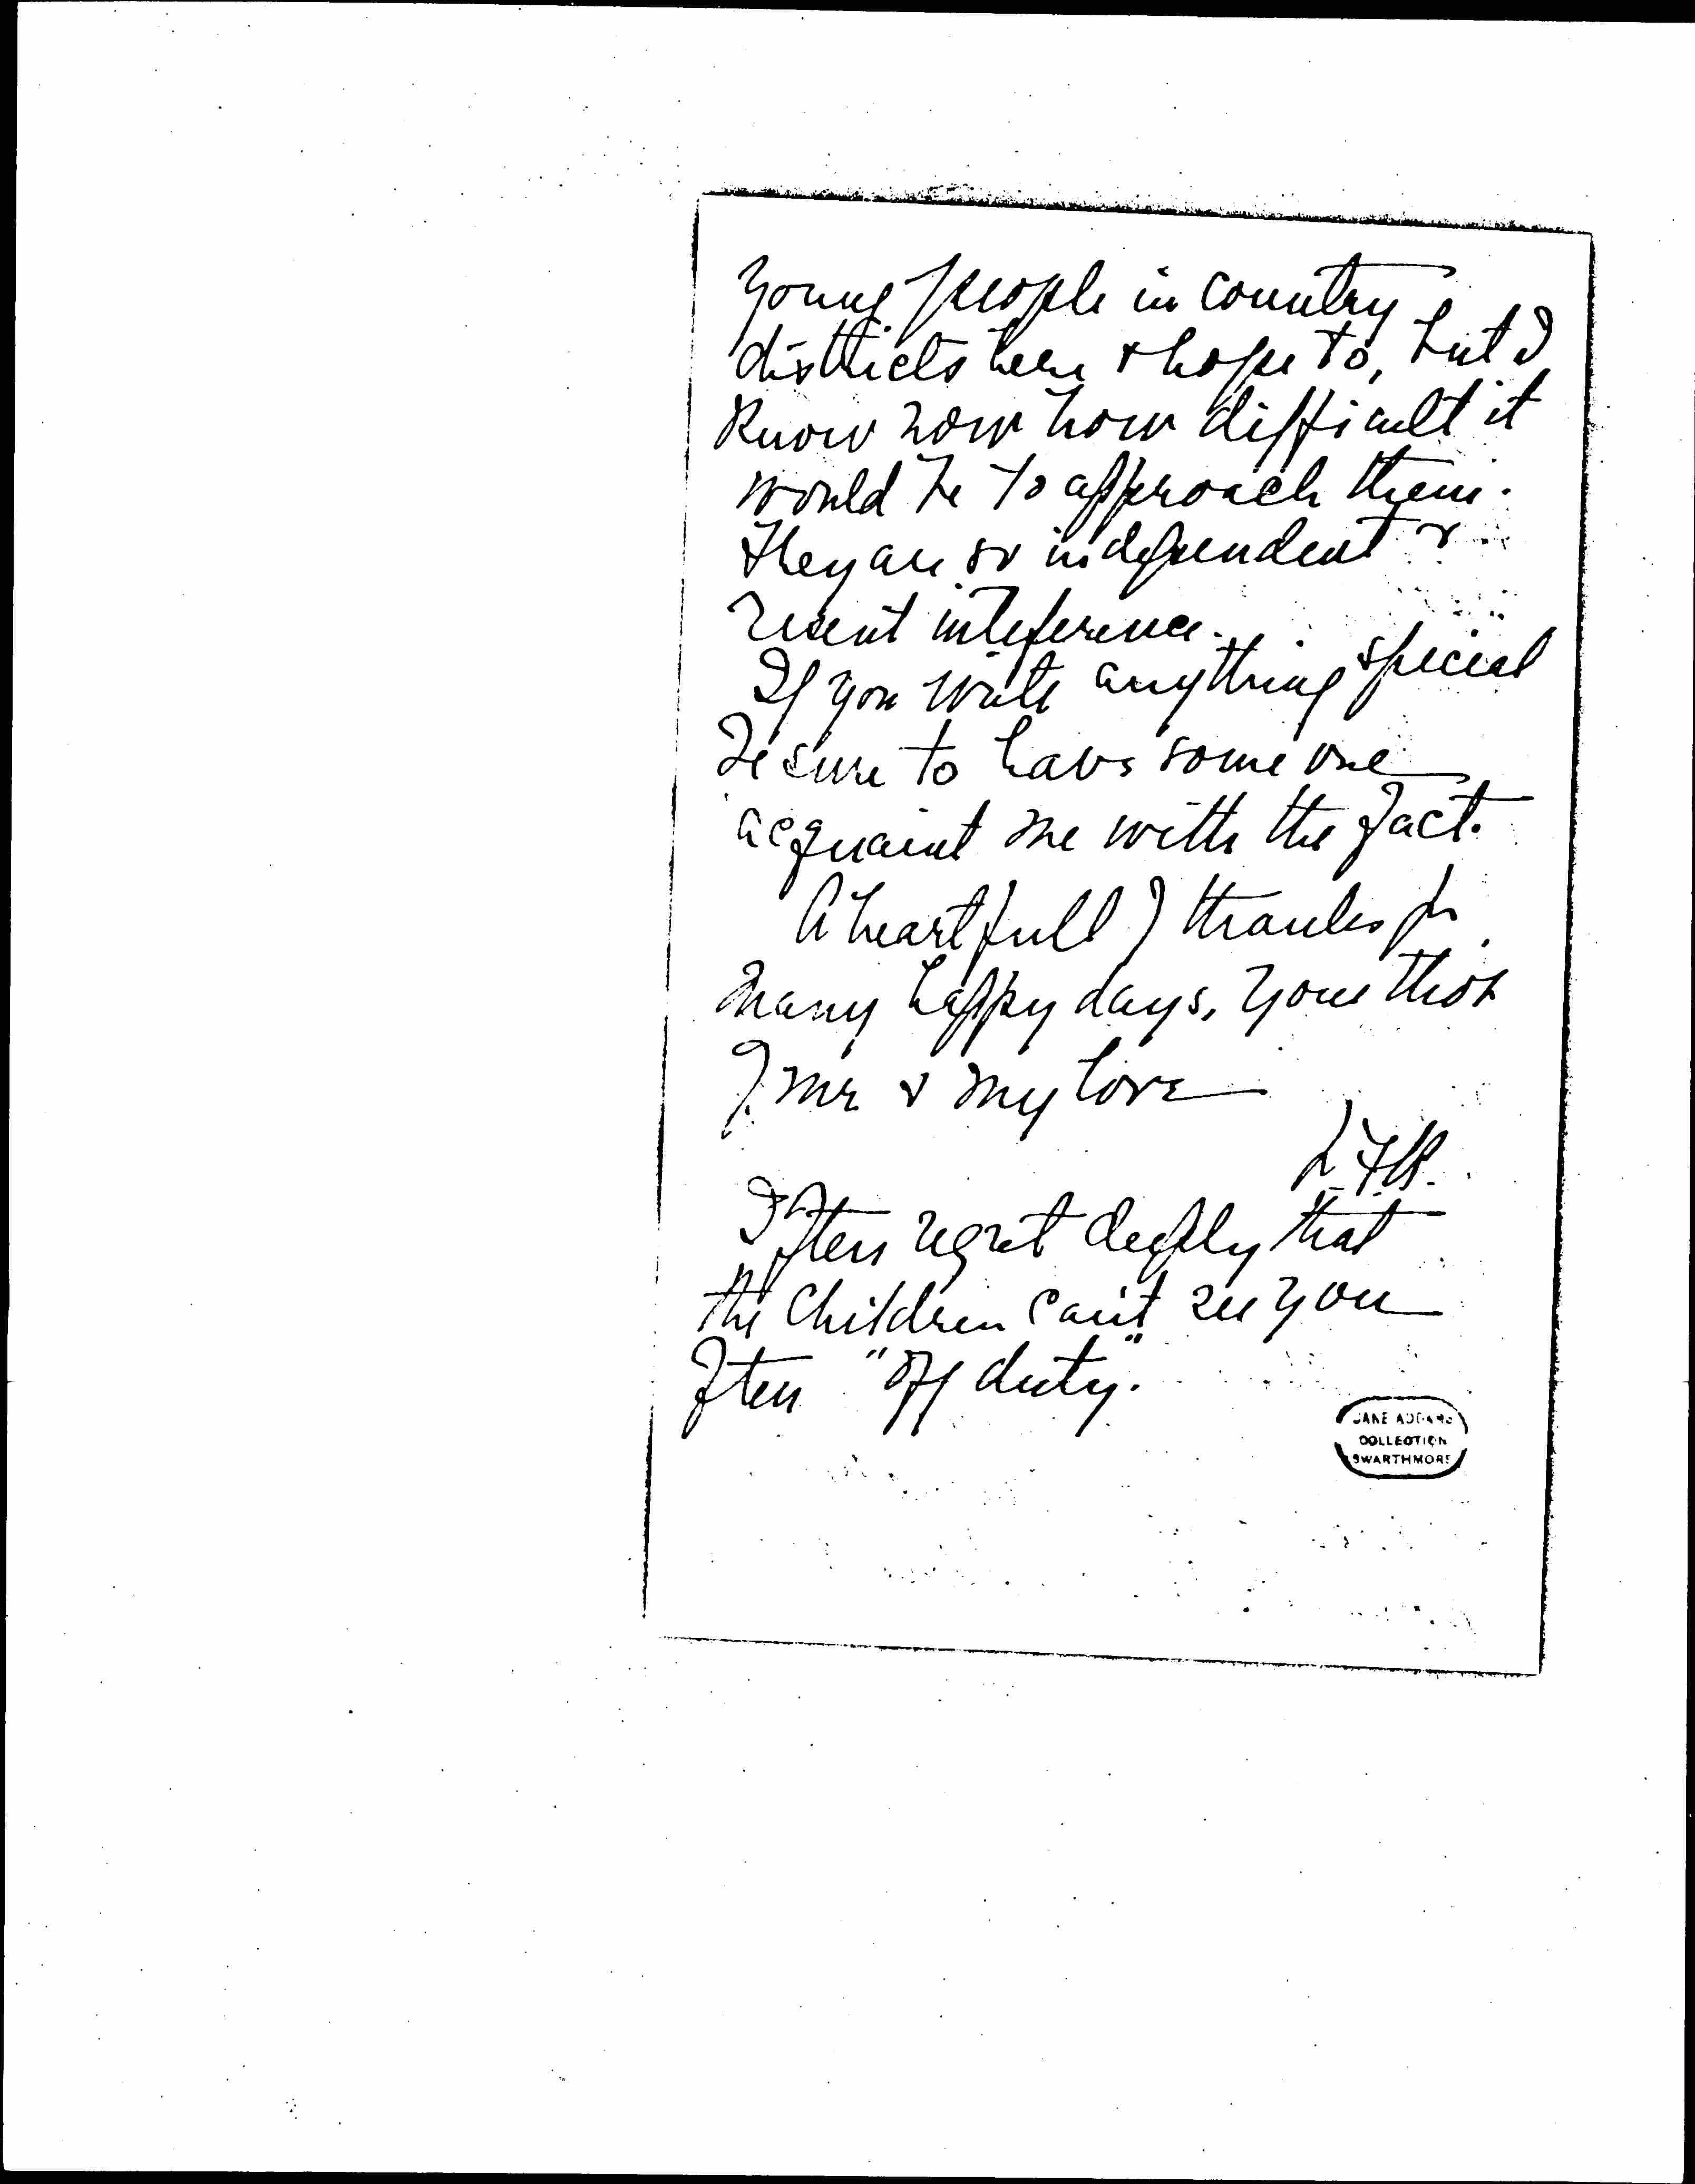 young people in country
districts here & hope to, but I
know now how difficult it
would be to approach them.
They are so independent &
resent inteference.
If you write anything special
be sure to have some one
acquaint me with the fact.
A heart full of thanks for
many happy days, your thot
of me & my love
L.F.B.
I often regret deeply that
the children can't see you
often "off duty."
JANE ADDAMS
COLLECTION
SWARTHMORE